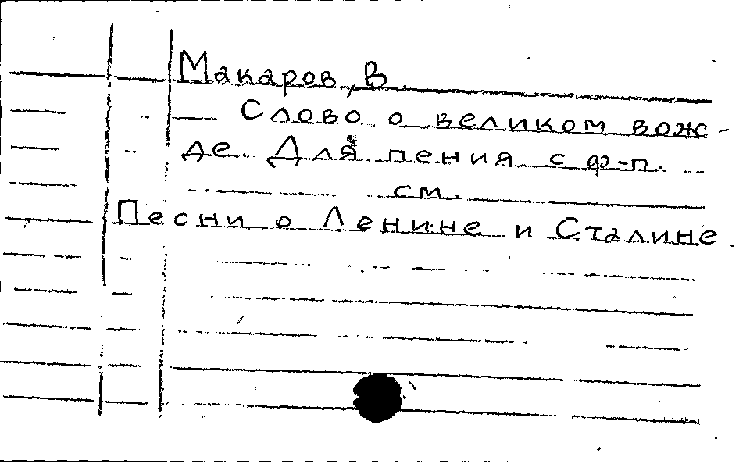 Макаров, В.
Слово о великом вож-
де. Для пения с ф-п.
см.
Песни о Ленине и Сталине.